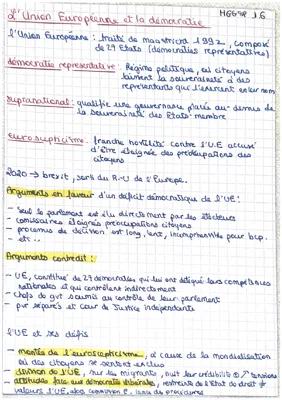 L'Union Européenne et la démocratie
HGGSP 1.6
l'Union Européenne : traité de maastricht 1992, composé
de 27 Etats (démocraties représentatives)
démocratie représentative : Régime politique, où citoyens
laissent la souveraineté à des
représentants qui l'exercent en leur nom
supranational : qualifie une gouvernance placée au-dessus de
la souveraineté des Etats-membre
euroscepticisme : franche hostilité contre l'UE accusé
d'être éloignée des préoccupations des
citoyens
2020 → brexit, sorti du R-U de l'Europe.
Arguments en faveur d'un déficit démocratique de l'UE :
- Seul le parlement est élu directement par les électeurs
- comissaires éloignés préoccupations citoyens
- processus de décision est long, lent, incompréhensible pour bcp.
- etc..
Arguments contredit :
- UE, constitué de 27 démocraties qui lui ont délégué leurs compétences
nationales et qui contrôlent indirectement
- Chefs de gvt soumis au contrôle de leur parlement
- pvr séparés et cour de Justice indépendante
l'UE et ses défis
- montée de l'euroscepticisme, à cause de la mondialisation
où des citoyens se sentent exclus
- division de l'UE, sur les migrants, nuit leur crédibilité ↗ tensions
- attitudes face aux démocraties illibérales, restreints de l'Etat de droit ≠
valeurs l'UE, commission E. lance des procédures